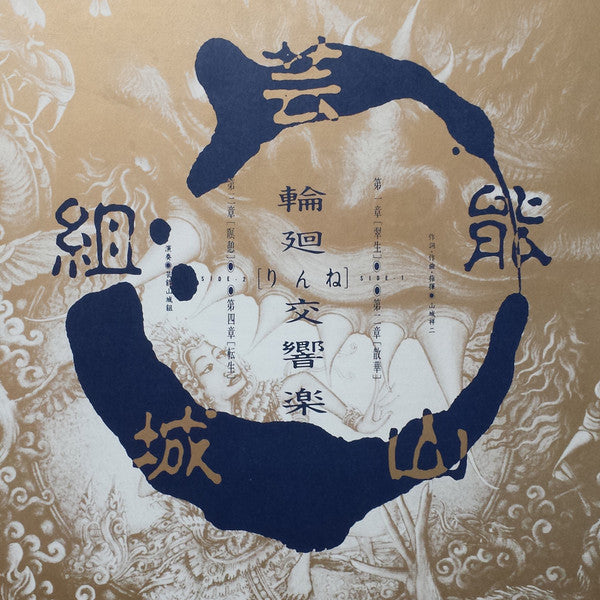 芸能山城組
輪廻交響楽
[りんね]
作詞・作曲・指揮●山城祥二
SIDE-1
第一章[翠生]●●第二章[散華]
SIDE-2
第三章[瞑憩]●●第四章[転生]
演奏●芸能山城組